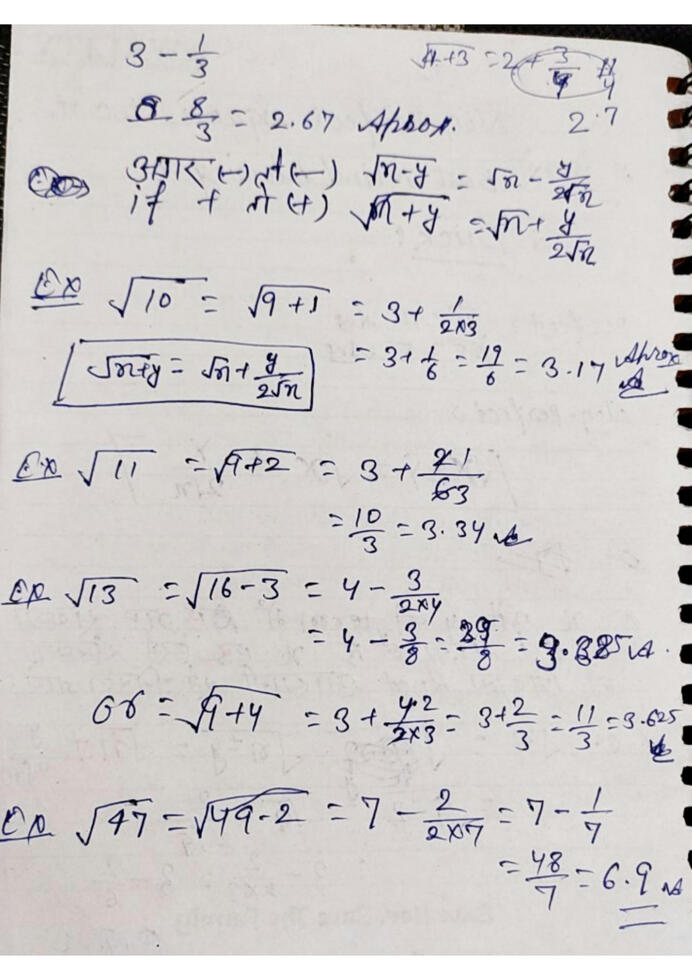 3 - 1/3
√4+3 = 2 + 3/4 11/4
8/3 = 2.67 Aprox.
2.7
अगर (-) तो (-) √x-y = √x - y/2√x
if + तो (+) √x+y = √x + y/2√x
Ex √10 = √9+1 = 3 + 1/2×3
√x+y = √x + y/2√x
= 3 + 1/6 = 19/6 = 3.17 Aprox
Ex √11 = √9+2 = 3 + 21/63
= 10/3 = 3.34
Ex √13 = √16-3 = 4 - 3/2×4
= 4 - 3/8 = 29/8 = 3.625
or = √9+4 = 3 + 4 2/2×3 = 3 + 2/3 = 11/3 = 3.625
Ex √47 = √49-2 = 7 - 2/2×7 = 7 - 1/7
= 48/7 = 6.9